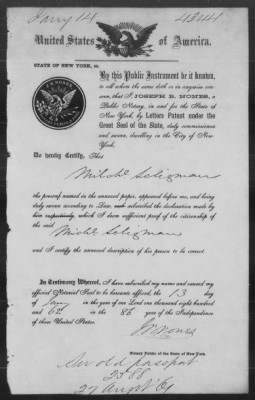 Jany 14 4344
United States of America.
STATE OF NEW YORK, ss.
By this Public Instrument be it known,
to all whom the same doth or in anywise con-
cern, that I JOSEPH B. NONES, a
Public Notary, in and for the State of
New York, by Letters Patent under the
Great Seal of the State, duly commissioned
and sworn, dwelling in the City of New
York,
Do hereby Certify, That
Michel Seligman
the person named in the annexed paper, appeared before me, and being
duly sworn according to Law, and subscribed the declaration made by
him respectively, which I deem sufficient proof of the citizenship of
the said
Michl Seligman
and I certify the annexed description of his person to be correct.
In Testimony Whereof, I have subscribed my name and caused my
official Notarial Seal to be hereunto affixed, the 13 day
of Jany in the year of our Lord one thousand eight hundred
and 62 in the 86 year of the Independence
of these United States.
JB Nones
Notary Public of the State of New York.
An old passport
2588
27 August 61